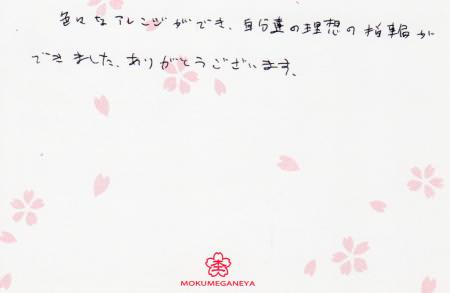 色々なアレンジができ、自分達の理想の指輪が
できました、ありがとうございます。
MOKUMEGANEYA